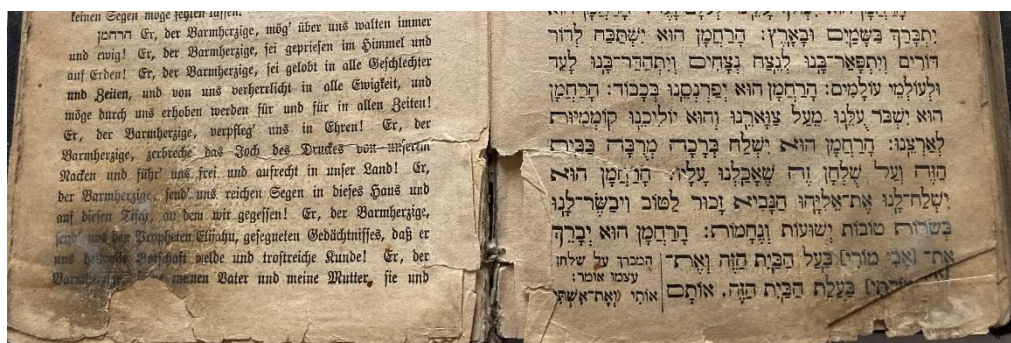 keinen Segen möge fehlen lassen.
הרחמן Er, der Barmherzige, mög' über uns walten immer
und ewig! Er, der Barmherzige, sei gepriesen im Himmel und
auf Erden! Er, der Barmherzige, sei gelobt in alle Geschlechter
und Zeiten, und von uns verherrlicht in alle Ewigkeit, und
möge durch uns erhoben werden für und für in allen Zeiten!
Er, der Barmherzige, verpfleg' uns in Ehren! Er, der
Barmherzige, zerbreche das Joch des Druckes von unserm
Nacken und führ' uns frei und aufrecht in unser Land! Er,
der Barmherzige, send' uns reichen Segen in dieses Haus und
auf diesen Tisch, an dem wir gegessen! Er, der Barmherzige,
send' uns den Propheten Elijahu, gesegneten Gedächtnisses, daß er
uns Botschaft melde und trostreiche Kunde! Er, der
Barmherzige, meinen Vater und meine Mutter, sie und
יִתְבָּרַךְ בַּשָּׁמַיִם וּבָאָרֶץ: הָרַחֲמָן הוּא יִשְׁתַּבַּח לְדוֹר
דּוֹרִים וְיִתְפָּאַר־בָּנוּ לְנֵצַח נְצָחִים וְיִתְהַדַּר־בָּנוּ לָעַד
וּלְעוֹלְמֵי עוֹלָמִים: הָרַחֲמָן הוּא יְפַרְנְסֵנוּ בְּכָבוֹד: הָרַחֲמָן
הוּא יִשְׁבֹּר עֻלֵּנוּ מֵעַל צַוָּארֵנוּ וְהוּא יוֹלִיכֵנוּ קוֹמְמִיּוּת
לְאַרְצֵנוּ: הָרַחֲמָן הוּא יִשְׁלַח בְּרָכָה מְרֻבָּה בַּבַּיִת
הַזֶּה וְעַל שֻׁלְחָן זֶה שֶׁאָכַלְנוּ עָלָיו: הָרַחֲמָן הוּא
יִשְׁלַח־לָנוּ אֶת־אֵלִיָּהוּ הַנָּבִיא זָכוּר לַטּוֹב וִיבַשֶּׂר־לָנוּ
בְּשׂוֹרוֹת טוֹבוֹת יְשׁוּעוֹת וְנֶחָמוֹת: הָרַחֲמָן הוּא יְבָרֵךְ
אֶת־ (אָבִי מוֹרִי) בַּעַל הַבַּיִת הַזֶּה וְאֶת־ המברך על שלחן
עצמו אומר:
בַּעֲלַת הַבַּיִת הַזֶּה, אוֹתָם אוֹתִי (וְאֶת־אִשְׁתִּי